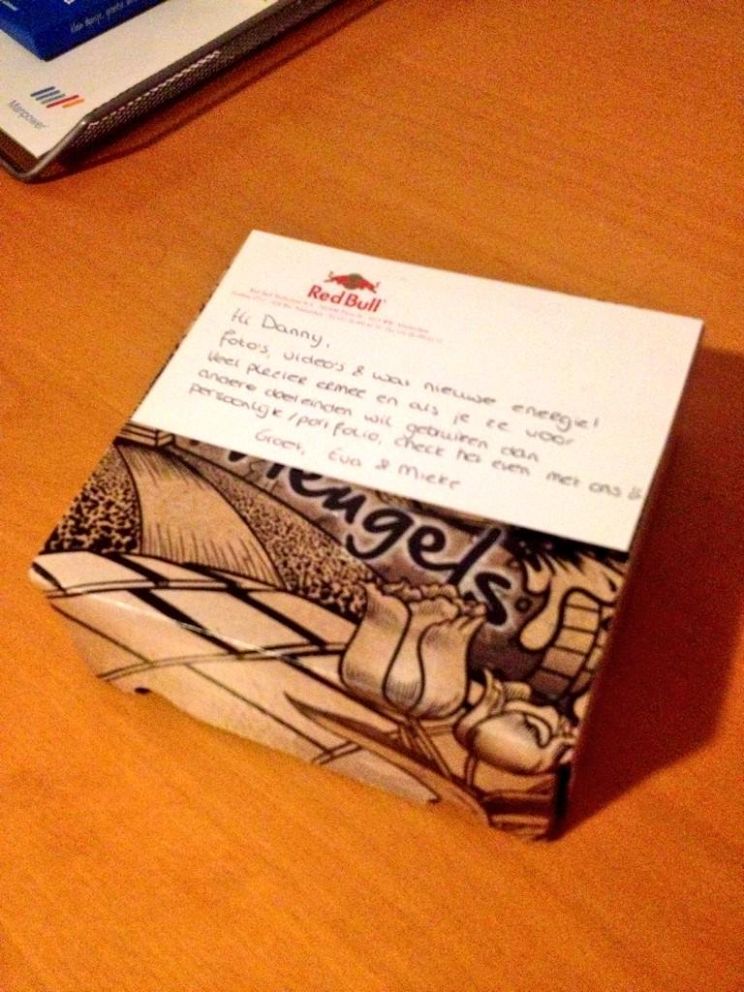 Manpower
Red Bull
Hi Danny,
foto's, video's & wat nieuwe energie!
Veel plezier ermee en als je ze voor
andere doeleinden wil gebruiken dan
persoonlijk/portfolio, check het even met ons
Groet, Eva & Mieke
Vleugels